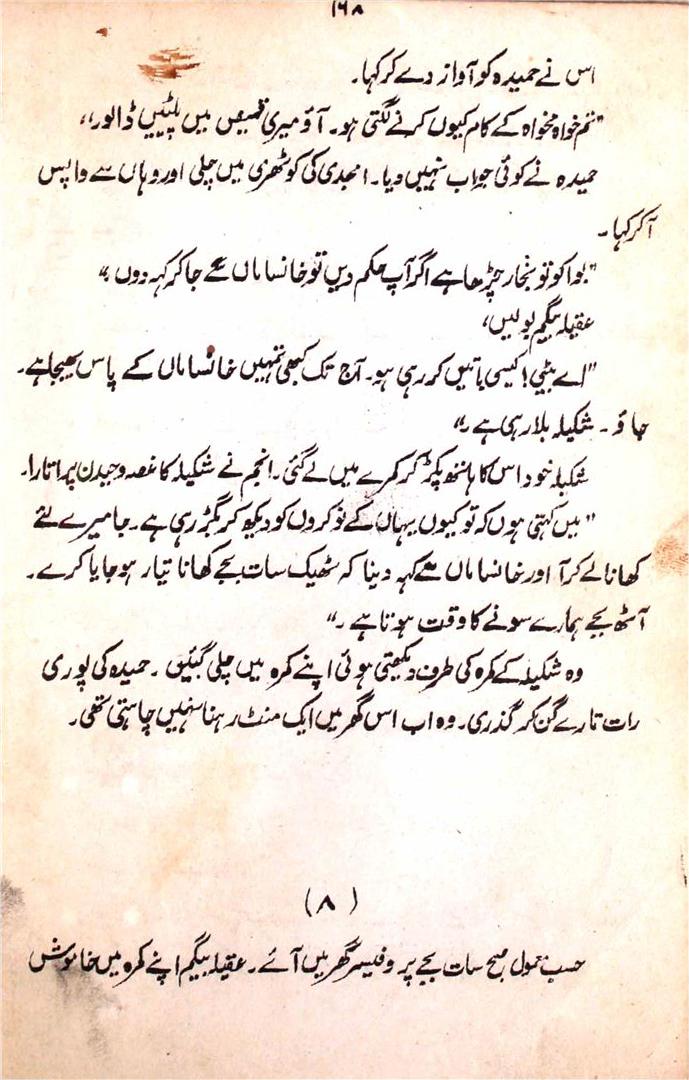 ۱۶۸
اس نے حمیدہ کو آواز دے کر کہا۔
"تم خواہ مخواہ کے کام کیوں کرنے لگتی ہو۔ آؤ میری قمیص میں پلیٹیں ڈالو۔"
حمیدہ نے کوئی جواب نہیں دیا۔ امجدی کی کوٹھری میں چلی اور وہاں سے واپس
آ کر کہا۔
"بوا کو تو بخار چڑھا ہے اگر آپ حکم دیں تو خانساماں سے جا کر کہہ دوں؟"
عقیلہ بیگم بولیں،
"اے بیٹی! کیسی باتیں کر رہی ہو۔ آج تک کبھی تمہیں خانساماں کے پاس بھیجا ہے۔
جاؤ۔ شکیلہ بلا رہی ہے۔"
شکیلہ خود اس کا ہاتھ پکڑ کر کمرے میں لے گئی۔ انجم نے شکیلہ کا غصہ وحیدن پر اتارا۔
"میں کہتی ہوں کہ تو کیوں یہاں کے نوکروں کو دیکھ کر بگڑ رہی ہے۔ جا میرے لئے
کھانا لے کر آ اور خانساماں سے کہہ دینا کہ ٹھیک سات بجے کھانا تیار ہو جایا کرے۔
آٹھ بجے ہمارے سونے کا وقت ہوتا ہے۔"
وہ شکیلہ کے کمرہ کی طرف دیکھتی ہوئی اپنے کمرہ میں چلی گئیں۔ حمیدہ کی پوری
رات تارے گن کر گذری۔ وہ اب اس گھر میں ایک منٹ رہنا نہیں چاہتی تھی۔
(۸)
حسب معمول صبح سات بجے پروفیسر گھر میں آئے۔ عقیلہ بیگم اپنے کمرہ میں خاموش